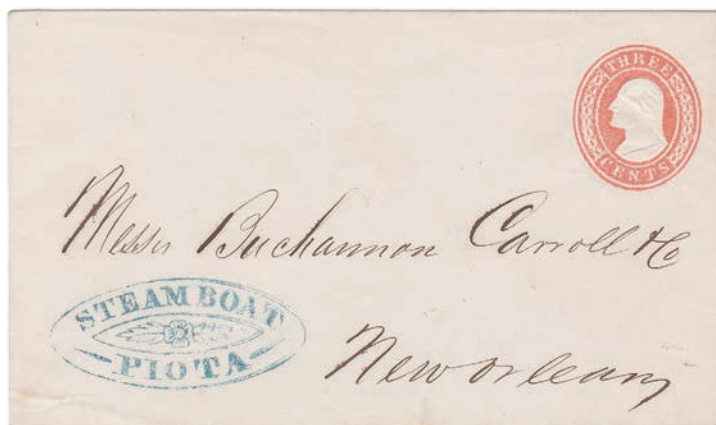 THREE
CENTS
Messrs Buchannon Carroll & Co
STEAMBOAT
PIOTA
New Orleans